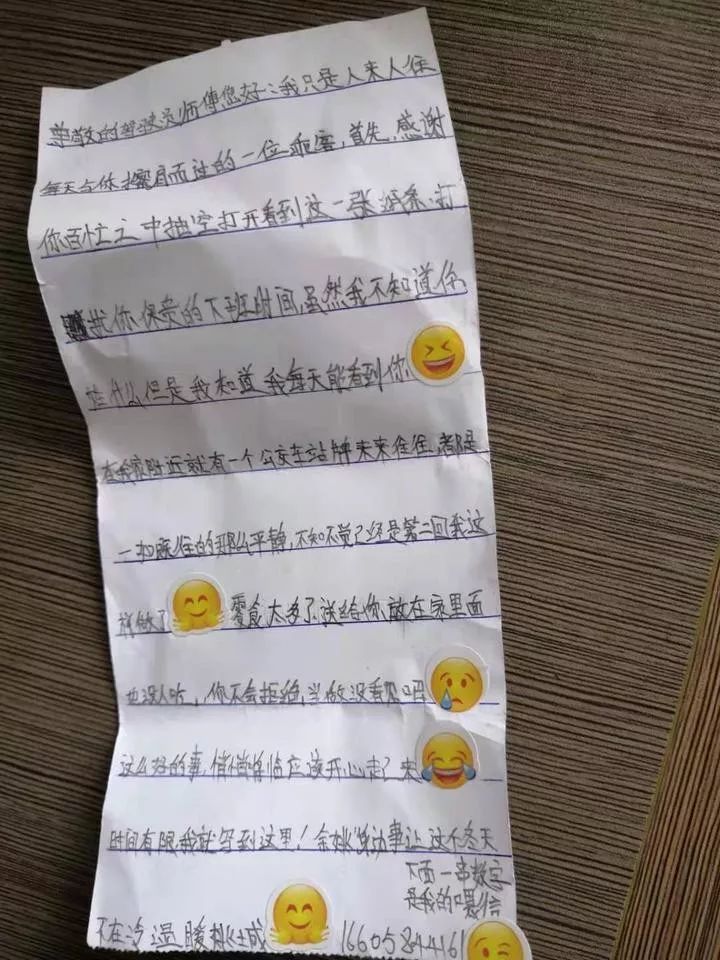 尊敬的驾驶员师傅您好:我只是人来人往
每天与你擦肩而过的一位乘客,首先,感谢
你百忙之中抽空打开看到这一张纸条,打
扰你保贵的下班时间,虽然我不知道你
在什么但是我知道我每天能看到你
在我家附近就有一个公交车站牌来来往往,都是
一如既往的那么平静,不知不觉已经是第二回我这
样做了 零食太多了送给你放在家里面
也没人吃,你不会拒绝,当做没看见吗
这么好的事,悄悄降临应该开心走了来
时间有限,我就写到这里!动事让这个冬天
下面一串数字
是我的微信
不在冷温暖桃城 16605844161